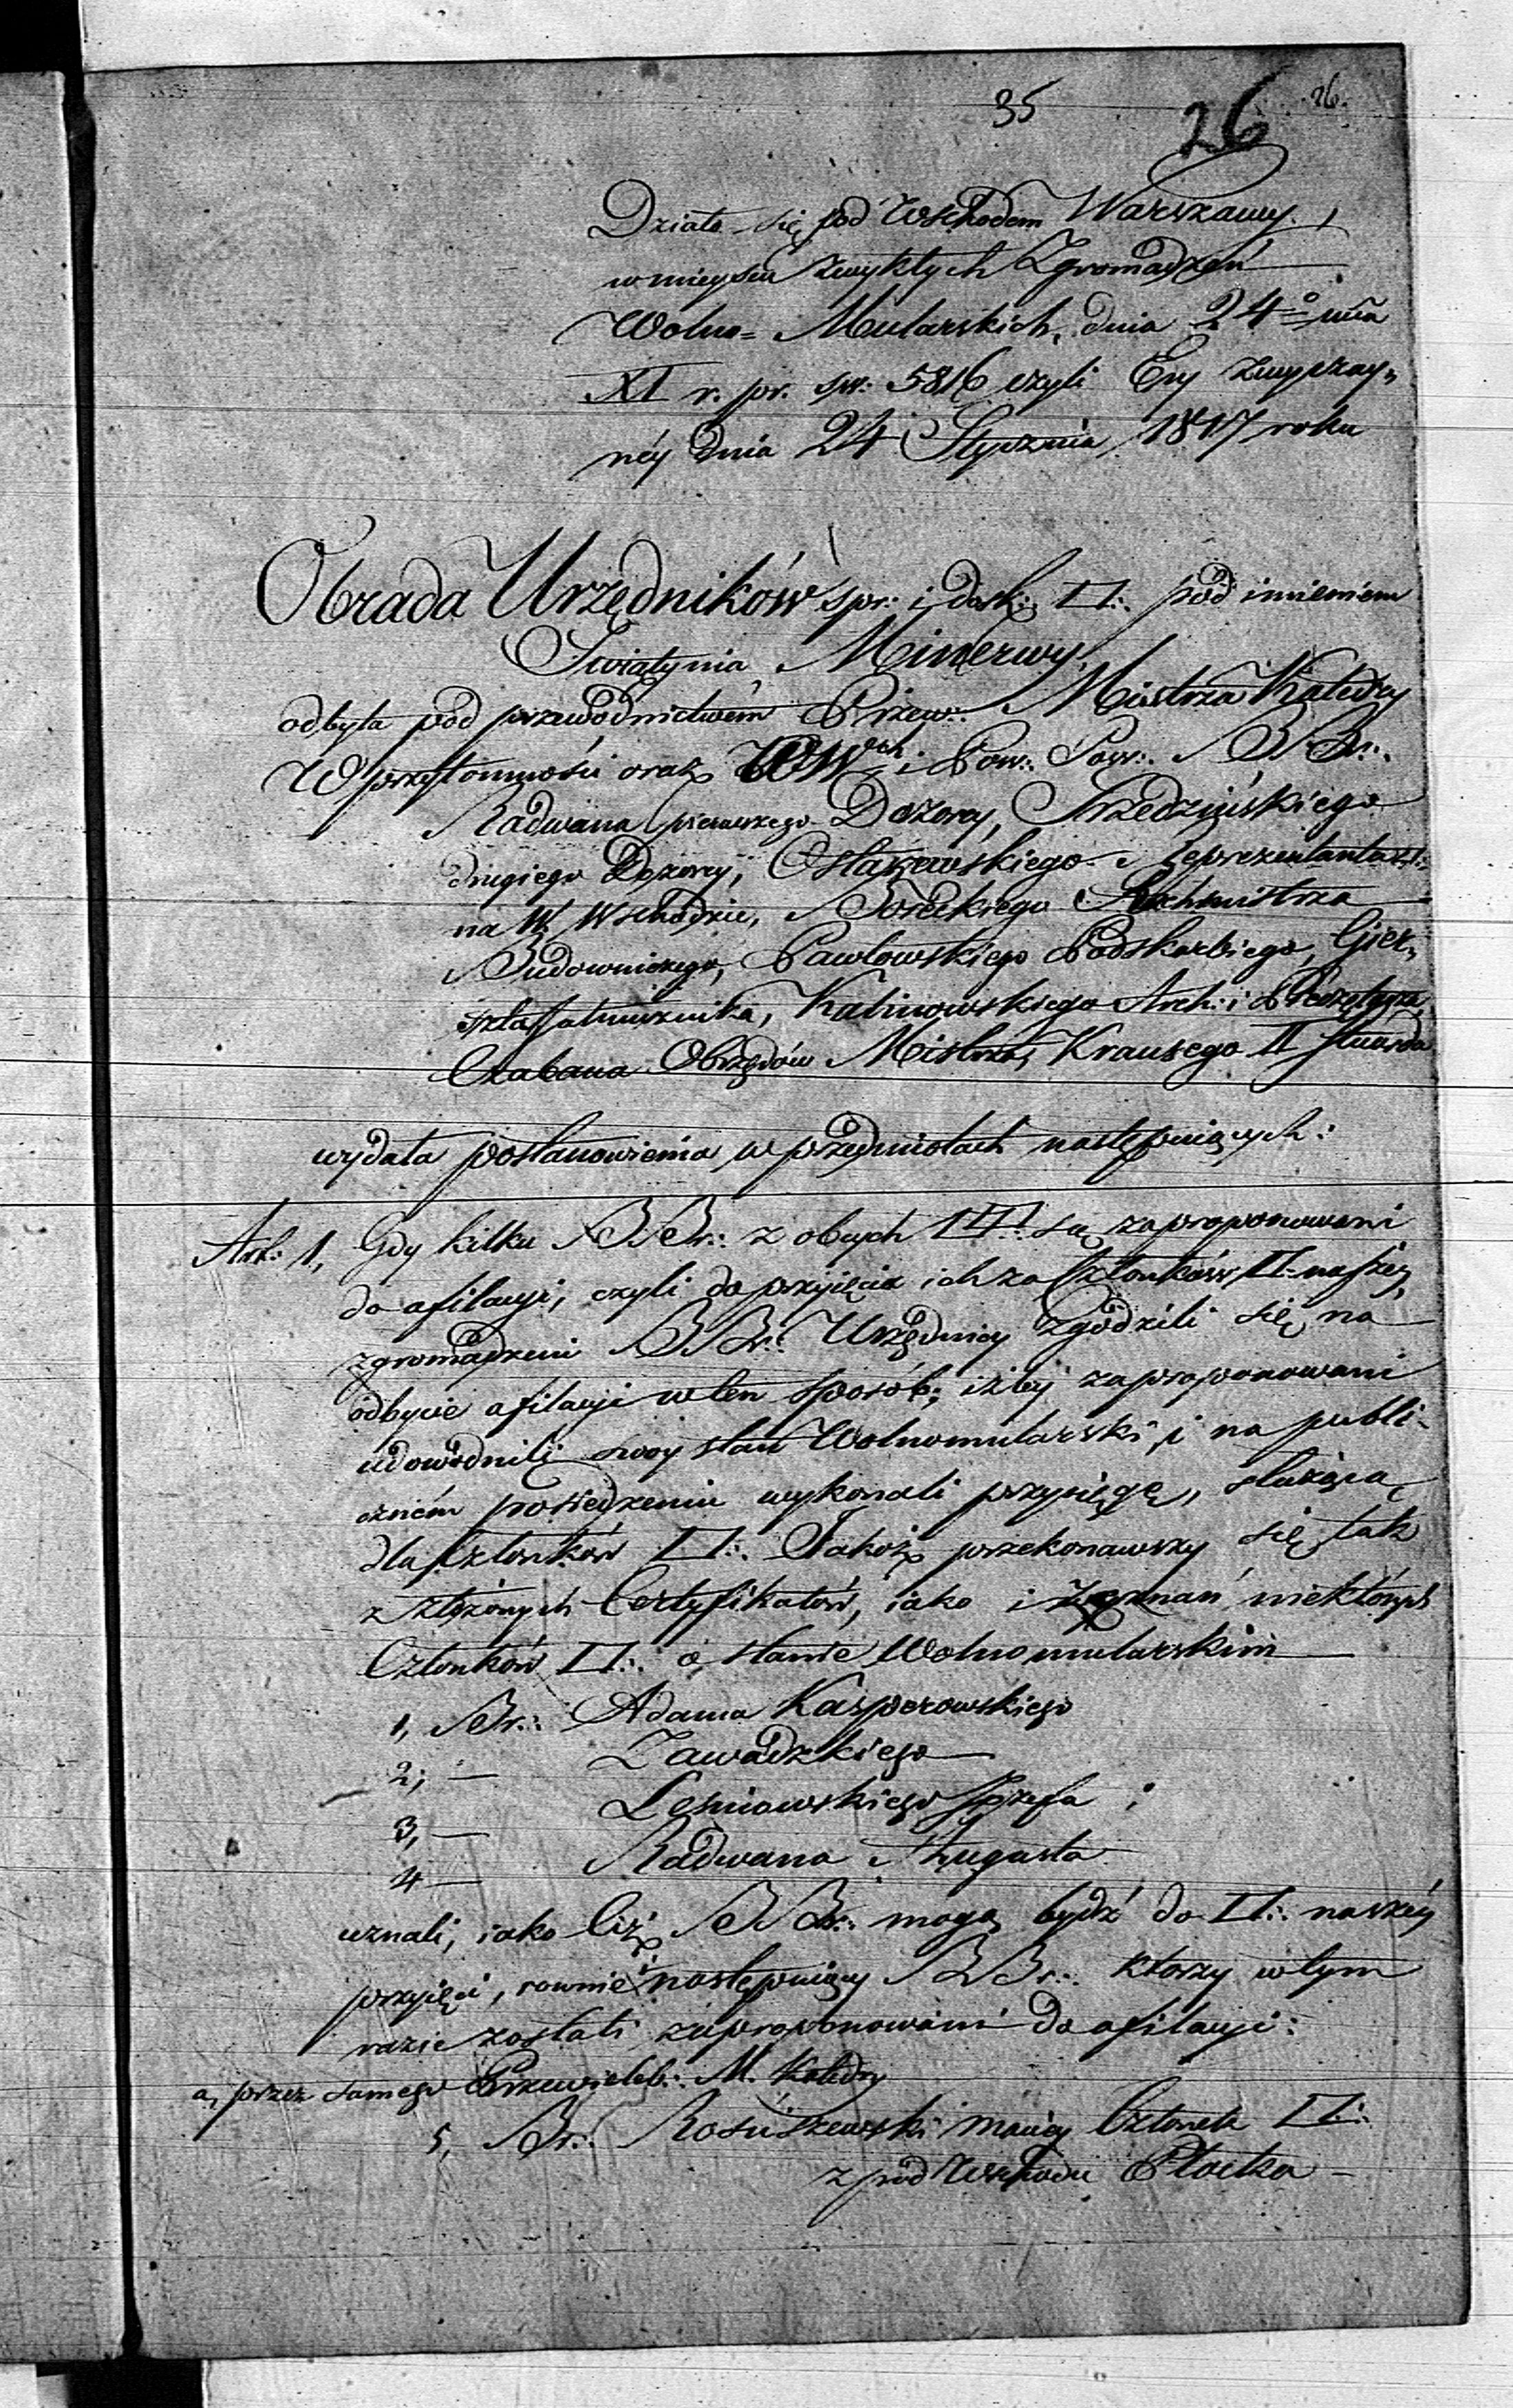 35 26 26.
Działo się pod Wschodem Warszawy,
w mieyscu zwykłych Zgromadzeń
Wolno= Mularskich, dnia 24º mca
XI r. pr. św: 5816 czyli Ery zwyczay„
néy dnia 24 Stycznia 1817 roku
Obrada Urzędników spr: i dosk: □:. pod imieniem
Swiątynia Minerwy,
odbyta pod przewodnictwem Przew:. Mistrza Katedry
W przytomności oraz WW i Pow: BBr:.
Radwana pierwszego Dozorcy, Srzedzińskiego
drugiego Dozorcy, Reprezentanta □:
na W. Wschodzie, Budowniczego, Pawłowskiego Podskarbiego, Gier„
Jałmużnika, Kalinowskiego Arch: i
Obrzędów Mistrza, Krausego II Stuarda
wydała postanowienia w przedmiotach następuiących:
Art: 1, Gdy kilku BBr:. z obcych □□:. są zaproponowani
do afilacyi, czyli do przyięcia ich za Członków □ naszéy,
zgromadzeni BBr:. Urzędnicy zgodzili się na
odbycie afilacyi w ten sposób; iżby zaproponowani
udowodnili swoy stan Wolnomularski, i na publi-
czném posiedzeniu wykonali przysięgę, służącą
dla Członków □:. Jakoż przekonawszy się tak
z złożonych Certyfikatów, iako i zeznań niektórych
Członków □:. o stanie Wolnomularskim
1, Br:. Adama Kasperowskiego
2, — Zawadzkiego
3, — Leśniowskiego Józefa i
4 — Radwana Augusta
uznali, iako Ciż BBr:. mogą bydź do □:. naszéy
przyięci, rownie następuiący BBr:. którzy w tym
razie zostali zaproponowani do afilacyi:
a, przez samego Przewieleb:. M. Katedry
5, Br:. Rościszewski Członek □:.
z pod Wschodu Płocka —